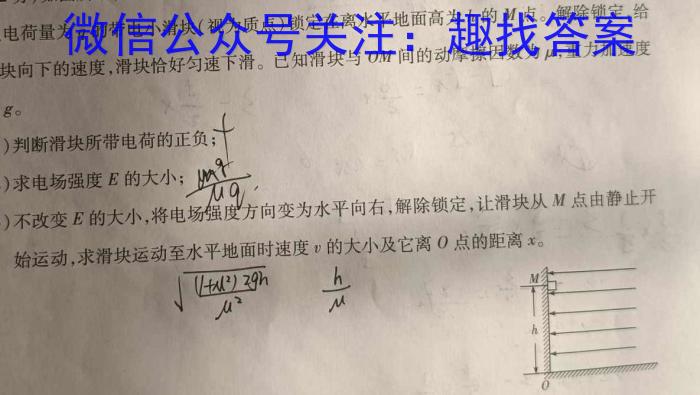 电荷量为
滑块(视为质点)锁定在离水平地面高为h的M点。解除锁定,给
微信公众号关注:趣找答案
块向下的速度,滑块恰好匀速下滑。已知滑块与OM间的动摩擦因数为μ,重力加速度
g。
)判断滑块所带电荷的正负; +
)求电场强度E的大小; mg/μq
)不改变E的大小,将电场强度方向变为水平向右,解除锁定,让滑块从M点由静止开
始运动,求滑块运动至水平地面时速度v的大小及它离O点的距离x。
√((1+μ²)2gh/μ²) h/μ
M
h
O